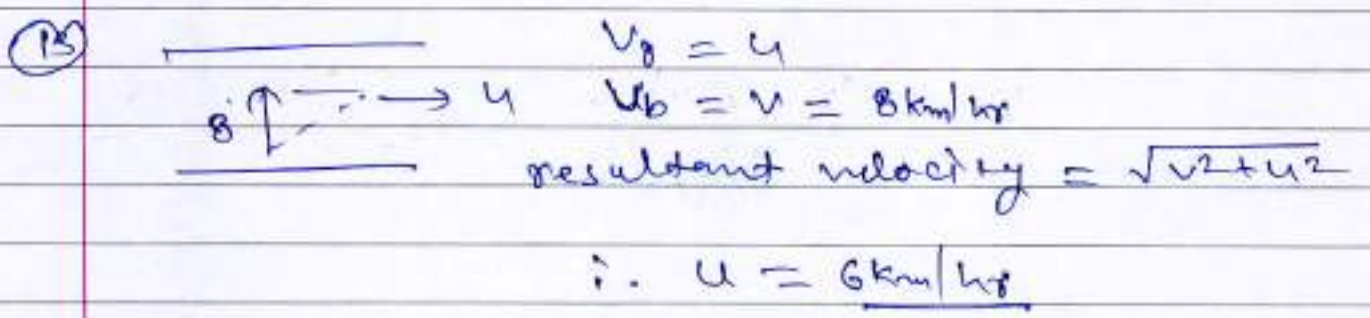 15
V_r = u
8 → u V_b = v = 8 km/hr
resultant velocity = √v2+u2
∴ u = 6km/hr